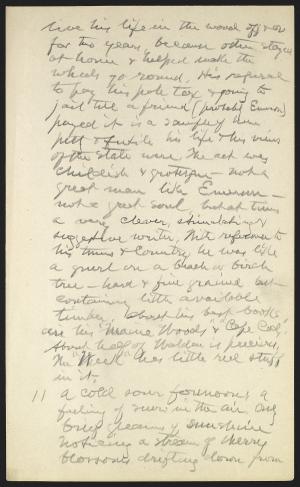 live his life in the woods off & on
for two years, because others stayed
at home & helped make the
wheels go round. His refusal
to pay his pole tax & going to
jail till a friend (probably Emerson)
payed it is a sample of how
petty & futile his life & his views
of the State were. The act was
childish & grotesque — not a
great man like Emerson —
not a great soul, but at times
a very clever, stimulating &
suggestive writer. With reference to
his times & Country he was like
a gnarl on a beach or birch
tree — hard & fine grained but
containing little available
timber. About his best books
are his "Maine Woods" & "Cape Cod."
About half of Walden is precious.
The "Week" has little real stuff
in it.
11 A cold sour forenoon, a
feeling of snow in the air. Only
brief gleams of sunshine
noticing a stream of cherry
blossoms drifting down from